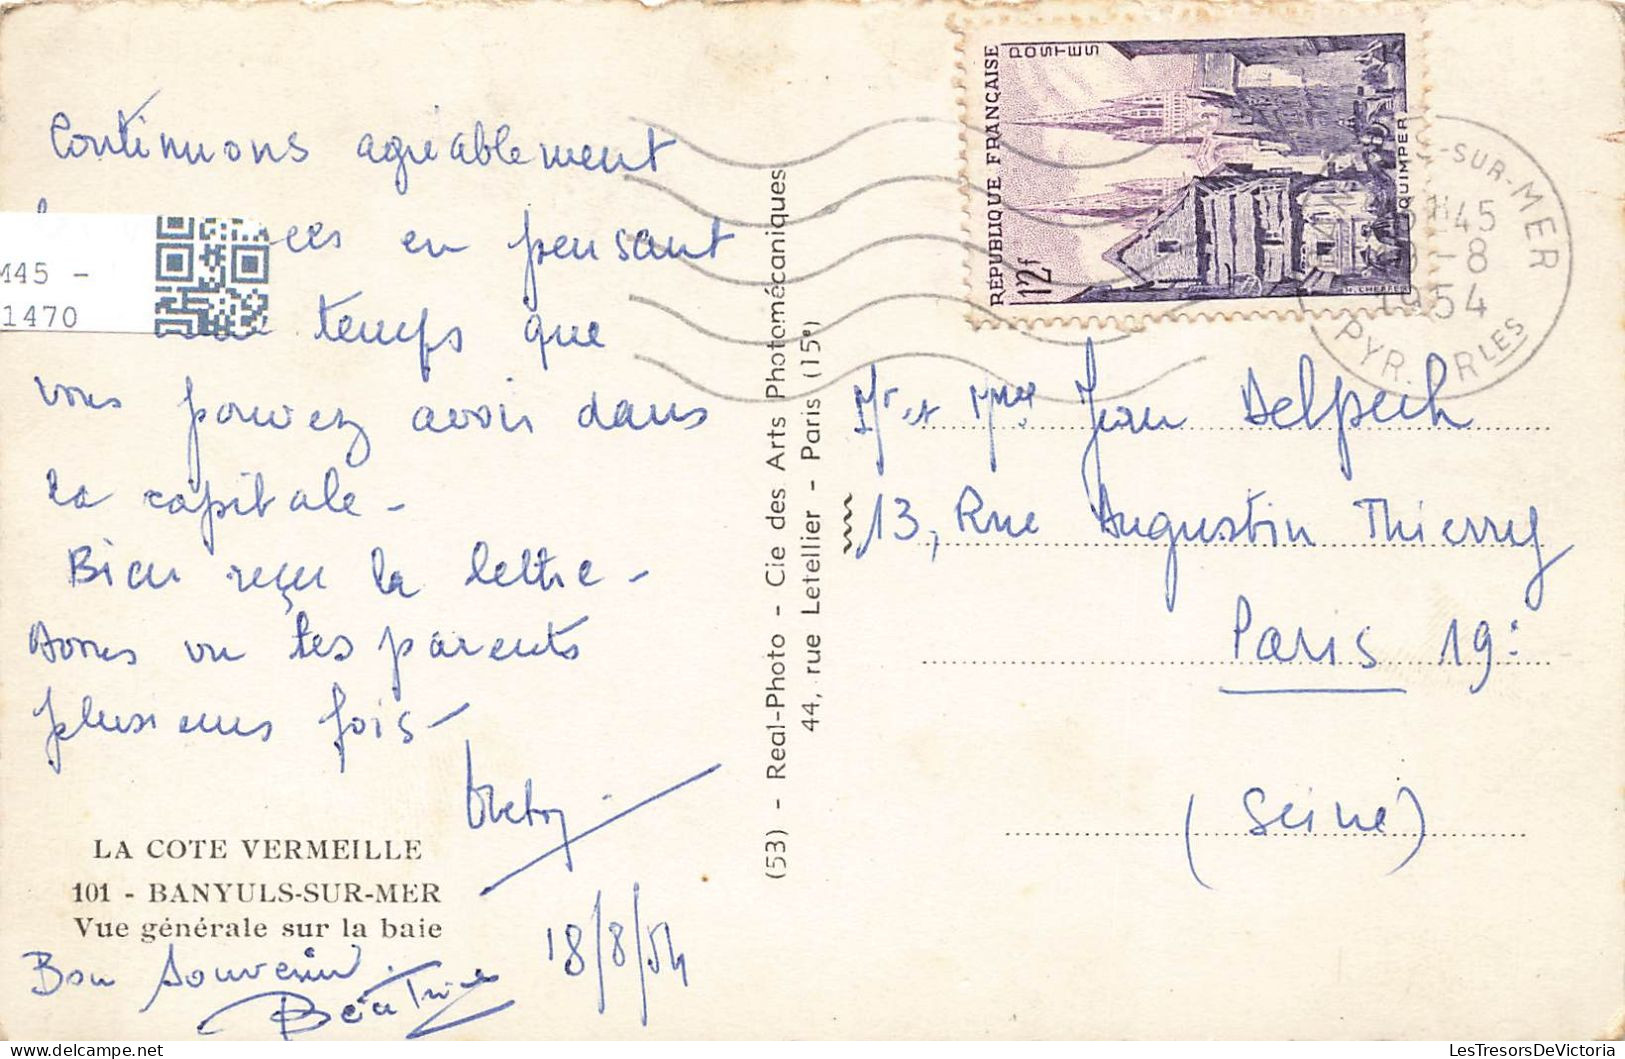 Continuons agréablement
en pensant
temps que
vous pouvez avoir dans
la capitale -
Bien reçu la lettre -
Avons vu tes parents
plusieurs fois -
18/8/54
LA COTE VERMEILLE
101 - BANYULS-SUR-MER
Vue générale sur la baie
Bon Souvenir
Béatrice
M45 -
1470
(53) - Real-Photo - Cie des Arts Photomécaniques
44, rue Letellier - Paris (15e)
REPUBLIQUE FRANÇAISE
POSTES
12f
QUIMPER
-SUR-MER
45
-8
1954
PYR. OR LES
Mr et Mme Jean Delpech
13, Rue Augustin Thierry
Paris 19e
(Seine)
LesTresorsDeVictoria.com